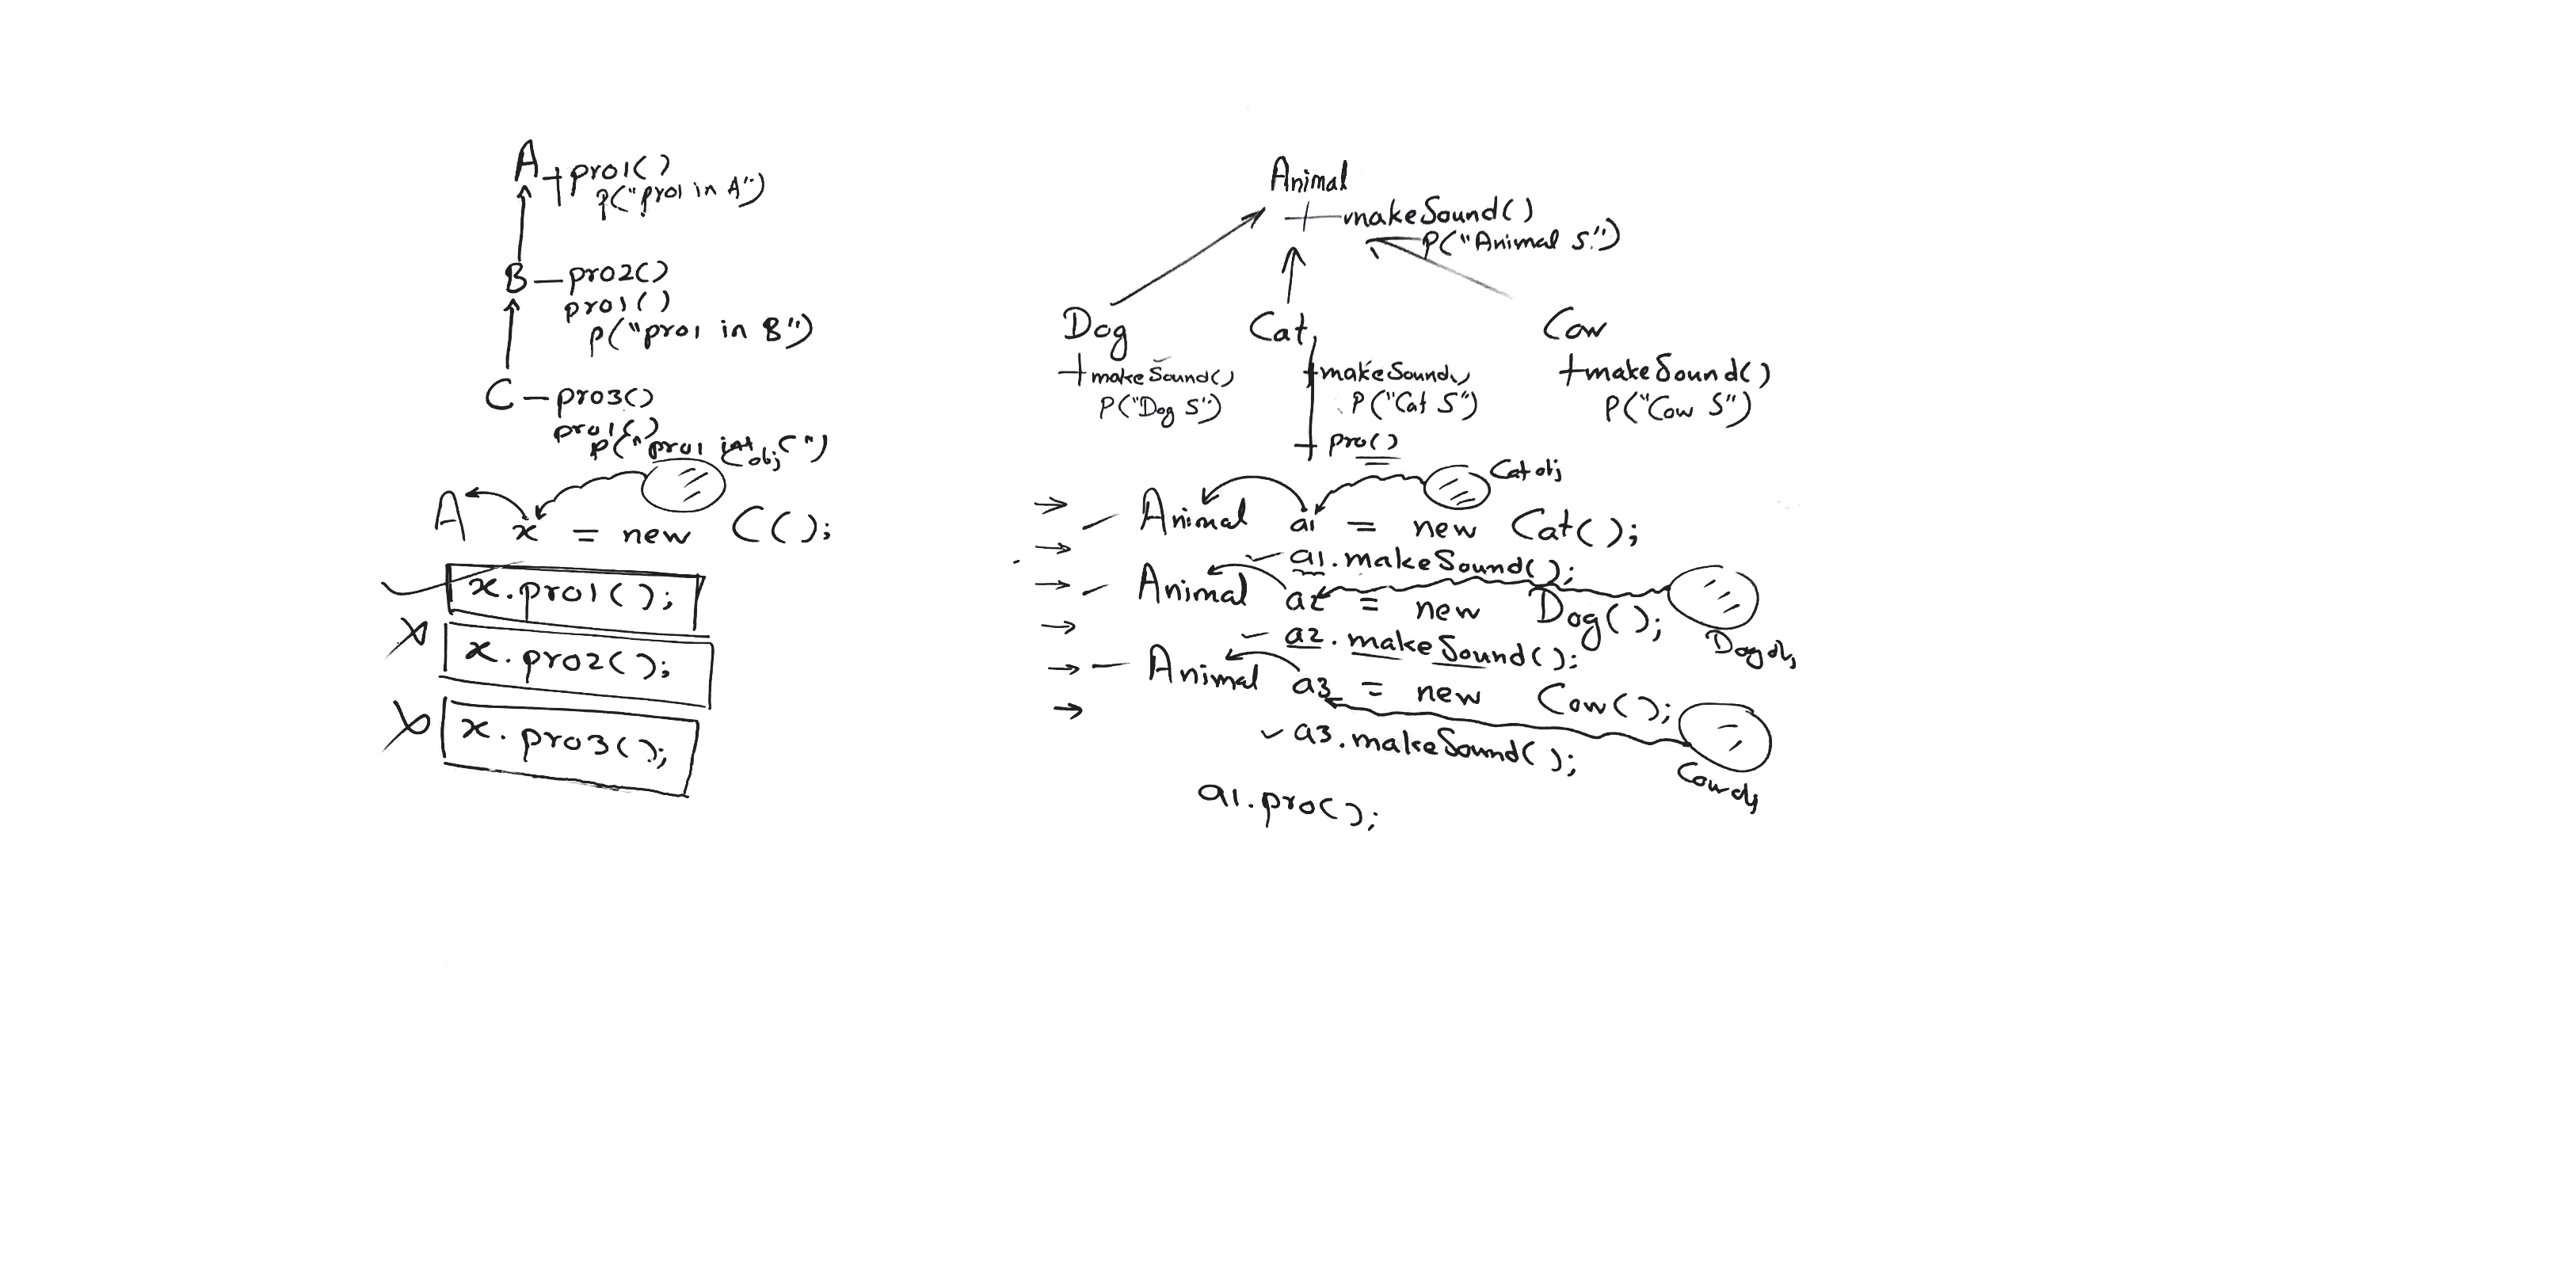 A + pro1()
p("pro1 in A")
B - pro2()
pro1()
p("pro1 in B")
C - pro3()
pro1()
p("pro1 in C")
C obj
A x = new C();
x.pro1();
x.pro2();
x.pro3();
Animal
+ makeSound()
P("Animal S")
Dog
+ makeSound()
P("Dog S")
Cat
+ makeSound()
P("Cat S")
+ pro()
Cow
+ makeSound()
P("Cow S")
Cat obj
Animal a1 = new Cat();
a1.makeSound();
Animal a2 = new Dog();
Dog obj
a2.makeSound();
Animal a3 = new Cow();
a3.makeSound();
Cow obj
a1.pro();